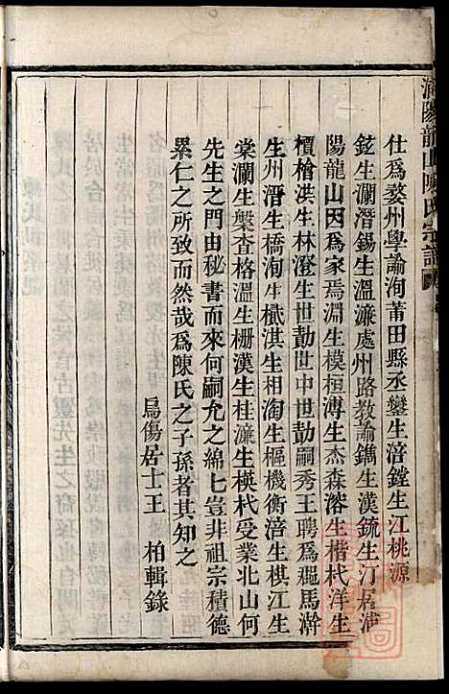 浦陽龍山陳氏宗譜
仕爲婺州學諭洵莆田縣丞鑾生涪鏜生江桃源
鉉生瀾潛錫生溫濂處州路教諭鐫生漢鋶生汀居浦
陽龍山因爲家焉淵生模桓溥生杰森溶生楷杙洋生
檟檜洪生林澄生世勣世中世勣嗣秀王聘爲龝馬澣
生州溍生橋洵生檝淇生相淘生樞機衡涪生棋江生
棠瀾生槃查格溫生栅漢生桂濂生模杙受業北山何
先生之門由秘書而來何嗣允之綿七豈非祖宗積德
累仁之所致而然哉爲陳氏之子孫者其知之
烏傷居士王 柏輯錄